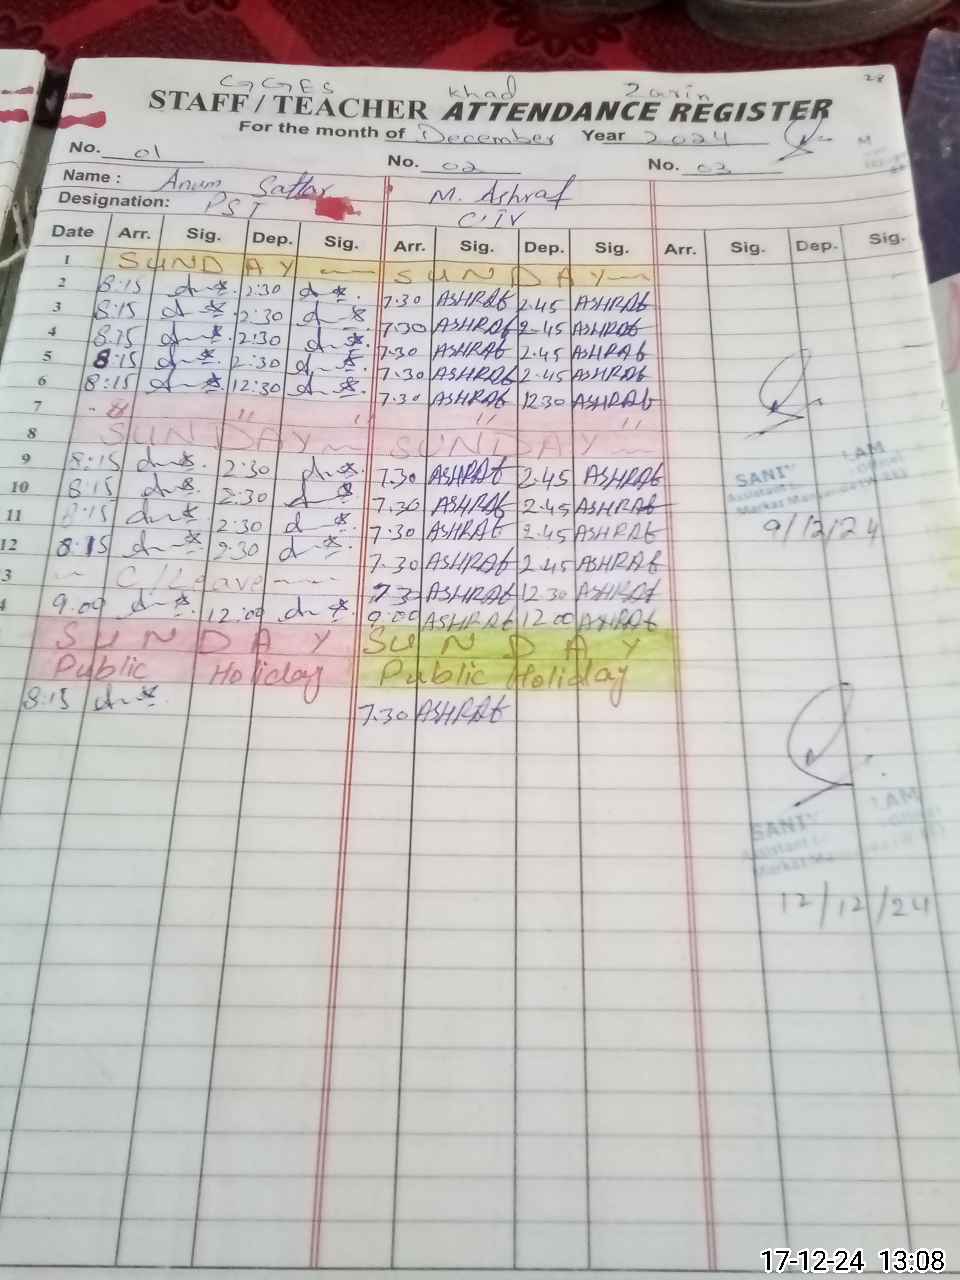 GGES khad Zarin 28
STAFF / TEACHER ATTENDANCE REGISTER
For the month of December Year 2024
No. 01 No. 02 No. 03
Name : Anum Sattar M. Ashraf
Designation: PST C.IV
Date Arr. Sig. Dep. Sig. Arr. Sig. Dep. Sig. Arr. Sig. Dep. Sig.
1 SUNDAY SUNDAY
2 8:15 2:30 7.30 ASHRAf 2.45 ASHRAf
3 8:15 2:30 7.30 ASHRAf 2.45 ASHRAf
4 8:15 2:30 7.30 ASHRAf 2.45 ASHRAf
5 8:15 2:30 7.30 ASHRAf 2.45 ASHRAf
6 8:15 12:30 7.30 ASHRAf 12.30 ASHRAf
7 " " "
8 SUNDAY SUNDAY
9 8:15 2:30 7.30 ASHRAf 2.45 ASHRAf
10 8:15 2:30 7.30 ASHRAf 2.45 ASHRAf
11 8:15 2:30 7.30 ASHRAf 2.45 ASHRAf
12 8:15 2:30 7.30 ASHRAf 2.45 ASHRAf
3 C/Leave 7.30 ASHRAf 12.30 ASHRAf
4 9.00 12:00 9:00 ASHRAf 12 00 ASHRAf
SUNDAY SUNDAY
Public Holiday Public Holiday
8:15 7.30 ASHRAf
SANI LAM
Assistant
9/12/24
SANI LAM
Assistant
12/12/24
17-12-24 13:08